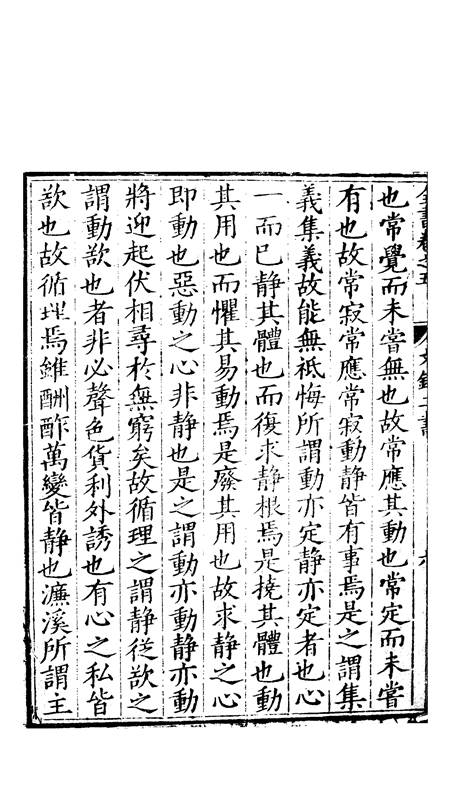 全書卷之五
文錄二書
六
也常覺而未嘗無也故常應其動也常定而未嘗
有也故常寂常應常寂動静皆有事焉是之謂集
義集義故能無祗悔所謂動亦定静亦定者也心
一而已静其體也而復求静根焉是撓其體也動
其用也而懼其易動焉是廢其用也故求静之心
即動也惡動之心非静也是之謂動亦動静亦動
將迎起伏相尋於無窮矣故循理之謂静從欲之
謂動欲也者非必聲色貨利外誘也有心之私皆
欲也故循理焉雖酬酢萬變皆静也濂溪所謂主